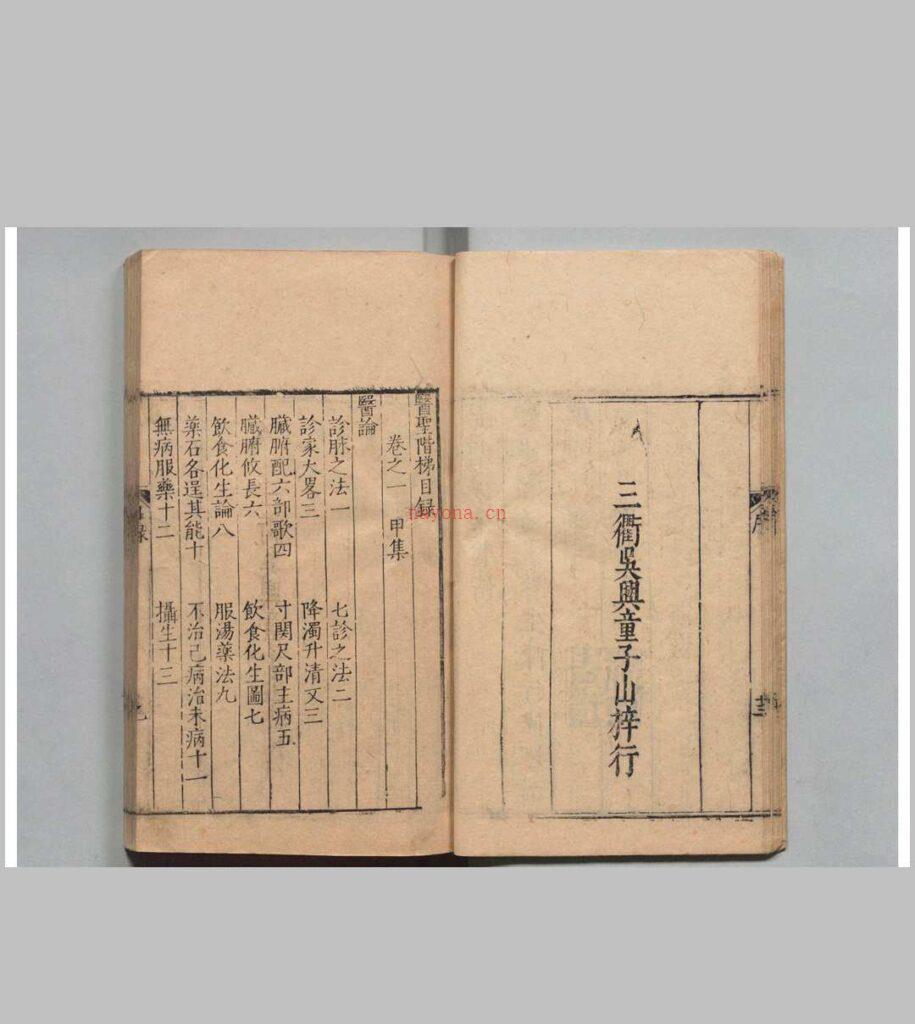 三衢吳興童子山梓行
醫聖階梯目録
卷之一　甲集
醫論
診脉之法一　七診之法二
診家大畧三　降濁升清又三
臟腑配六部歌四　寸関尺部主病五
臟腑攸長六　飲食化生圖七
飲食化生論八　服湯藥法九
藥石各逞其能十　不治已病治未病十一
無病服藥十二　攝生十三
nayona.cn